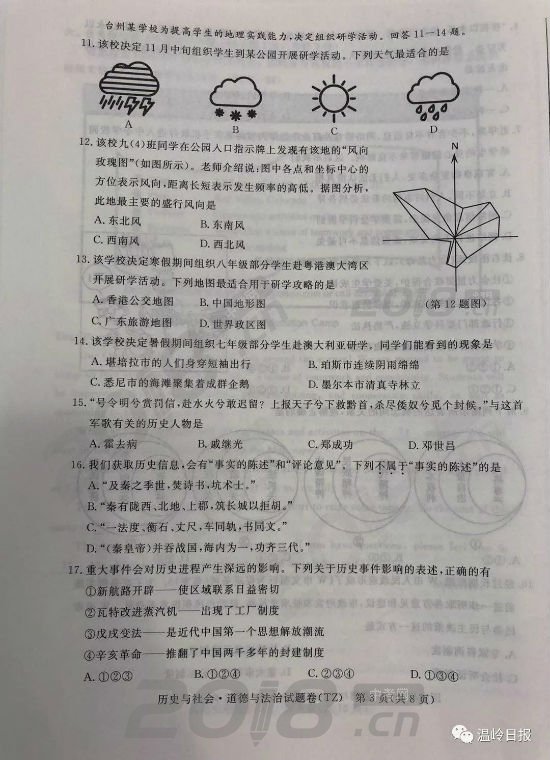 台州某学校为提高学生的地理实践能力,决定组织研学活动。回答11—14题。
11.该校决定11月中旬组织学生到某公园开展研学活动。下列天气最适合的是
A B C D
12.该校九(4)班同学在公园入口指示牌上发现有该地的“风向
玫瑰图”(如图所示)。老师介绍说:图中各点和坐标中心的
方位表示风向,距离长短表示发生频率的高低。据图分析,
此地最主要的盛行风向是
A.东北风 B.东南风
C.西南风 D.西北风
N
(第12题图)
13.该学校决定寒假期间组织八年级部分学生赴粤港澳大湾区
开展研学活动。下列地图最适合用于研学攻略的是
A.香港公交地图 B.中国地形图
C.广东旅游地图 D.世界政区图
14.该学校决定暑假期间组织七年级部分学生赴澳大利亚研学。同学们能看到的现象是
A.堪培拉市的人们身穿短袖出行 B.珀斯市连续阴雨绵绵
C.悉尼市的海滩聚集着成群企鹅 D.墨尔本市清真寺林立
15.“号令明兮赏罚信,赴水火兮敢迟留?上报天子兮下救黔首,杀尽倭奴兮觅个封候。”与这首
军歌有关的历史人物是
A.霍去病 B.戚继光 C.郑成功 D.邓世昌
16.我们获取历史信息,会有“事实的陈述”和“评论意见”。下列不属于“事实的陈述”的是
A.“及秦之季世,焚诗书,坑术士。”
B.“秦有陇西、北地、上郡,筑长城以拒胡。”
C.“一法度、衡石、丈尺,车同轨,书同文。”
D.“(秦皇帝)并吞战国,海内为一,功齐三代。”
17.重大事件会对历史进程产生深远的影响。下列关于历史事件影响的表述,正确的有
①新航路开辟——使区域联系日益密切
②瓦特改进蒸汽机——出现了工厂制度
③戊戌变法——是近代中国第一个思想解放潮流
④辛亥革命——推翻了中国两千多年的封建制度
A.①②③ B.①②④ C.②③④ D.①③④
历史与社会·道德与法治试题卷(TZ) 第3页(共8页)
中考网
2018.cn
温岭日报